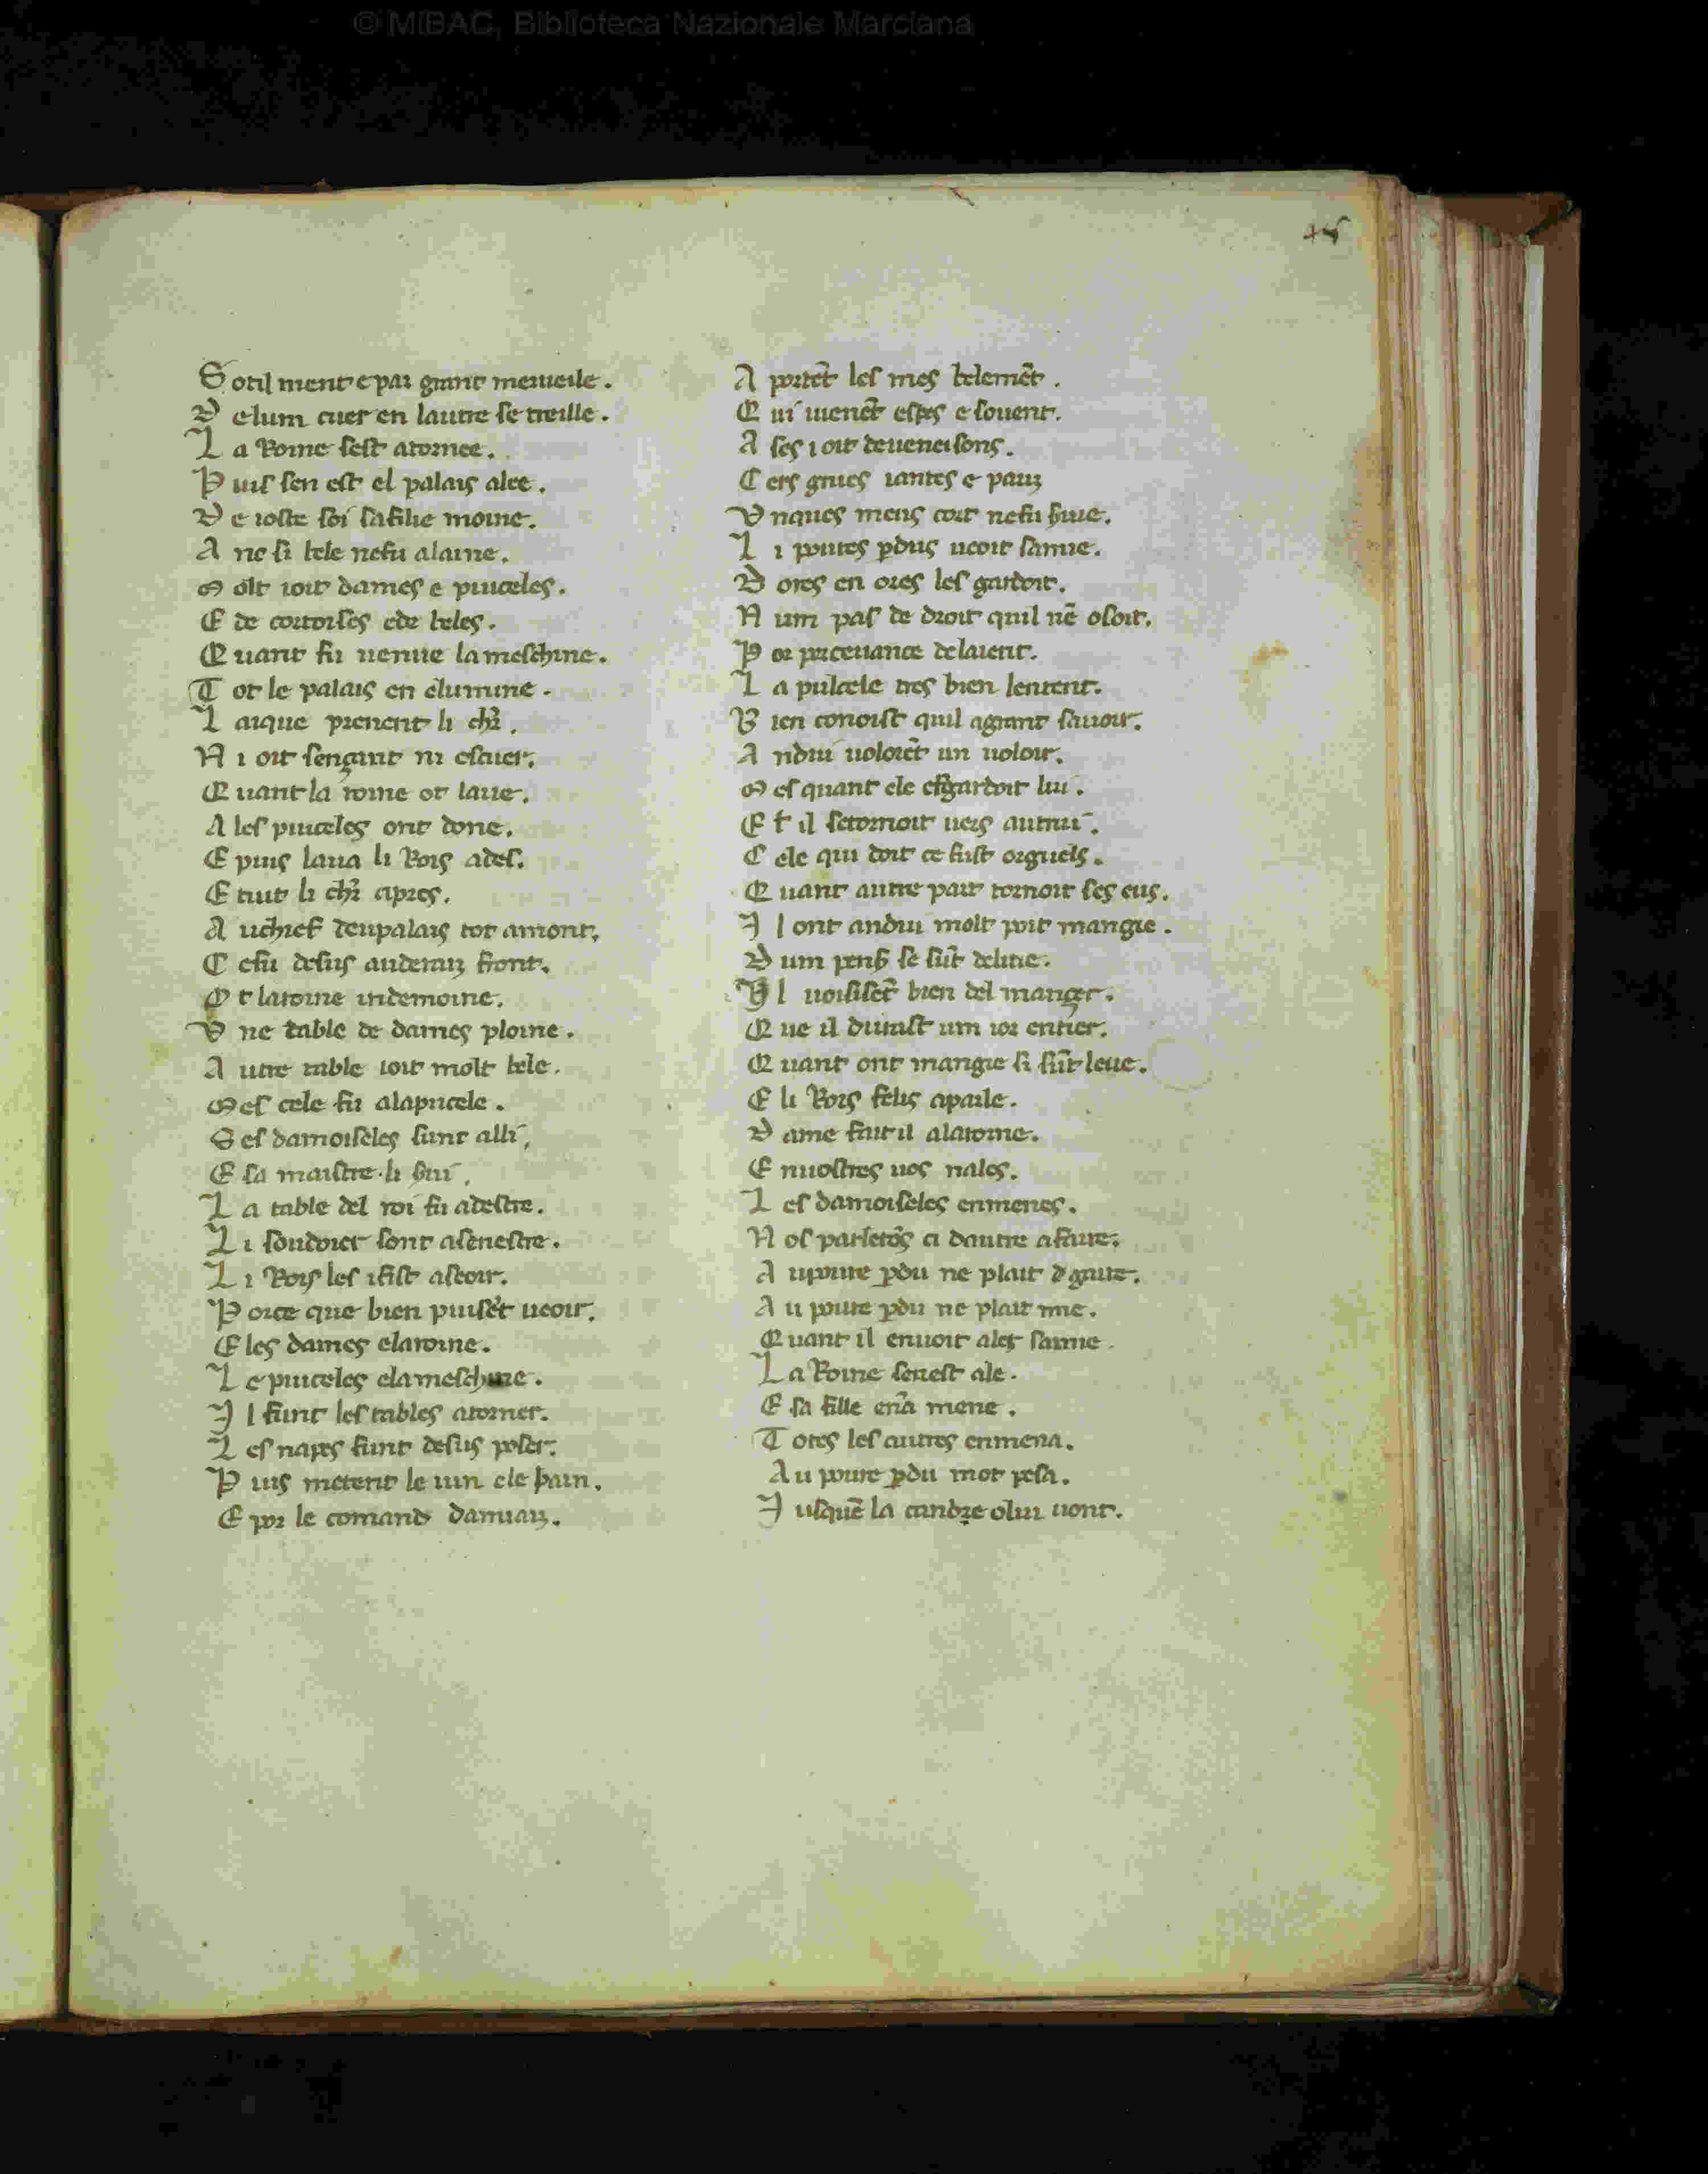 © MiBAC, Biblioteca Nazionale Marciana
S otil ment e par grant merueile.
D elum cuer en lautre se treille.
L a Roine sest atornee.
P uis sen est el palais alee.
D e ioste soi sa fille moine.
A ne si bele ne fu alaine.
M olt ioit dames e puceles.
E de cortoises e de beles.
Q uant fu uenue la meschine.
T ot le palais en elumine.
L aique prenent li chr̄.
N i oit sengant ni escuer.
Q uant la roine ot laue.
A les puiceles ont done.
E puis laua li Rois ades.
E tuit li chr̄ apres.
A u chief deu palais tot amont.
C e fu desus au derain front.
O t la roine in demoine.
U ne table de dames ploine.
A utre table ioit molt bele.
M es cele fu a la pucele.
S es damoiseles sunt alli.
E sa maistre li serui.
L a table del roi fu adestre.
L i soudoier sont a senestre.
L i Rois les i fist aseoir.
P or ce que bien puisēt ueoir.
E les dames e la roine.
L e puiceles e la meschine.
I l funt les tables atorner.
L es napes funt desus poser.
P uis metent le uin e le pain.
E por le comand damuaiz.
A portēt les mes belemēt.
Q ui uienēt espes e souent.
A ses i oit de ueneisons.
C ers grues iantes e pauz
U nques meus cort ne fu seruie.
L i poures p̱dus ueoit samie.
D ores en ores les gardoit.
N um pas de droit quil nē osoit.
P or perceuance de la ient.
L a pulcele tres bien lentent.
B ien conoist quil a grant sauoir.
A ndui uoloiēt un uoloir.
M es quant ele esgardoit lui.
E t il se tornoit uers autrui.
C ele qui doit ce fust orguels.
Q uant autre part tornoit ses eus.
I l ont andui molt poit mangie.
D um pens se sūt delitie.
I l uoisisēt bien del manger.
Q ue il durast um ior entier.
Q uant ont mangie si sūt leue.
E li Rois felis apaile.
D ame fait il a la roine.
E n uostres uos nales.
L es damoiseles en menes.
N os parlerōs ci dautre afaire.
A u poure p̱du ne plait d gaire.
A u poure p̱du ne plait mie.
Q uant il en uoit aler samie.
L a Roine sen est ale.
E sa fille enā mene.
T otes les autres en mena.
A u poure p̱du mot pesa.
I usquē la canbre o lui uont.